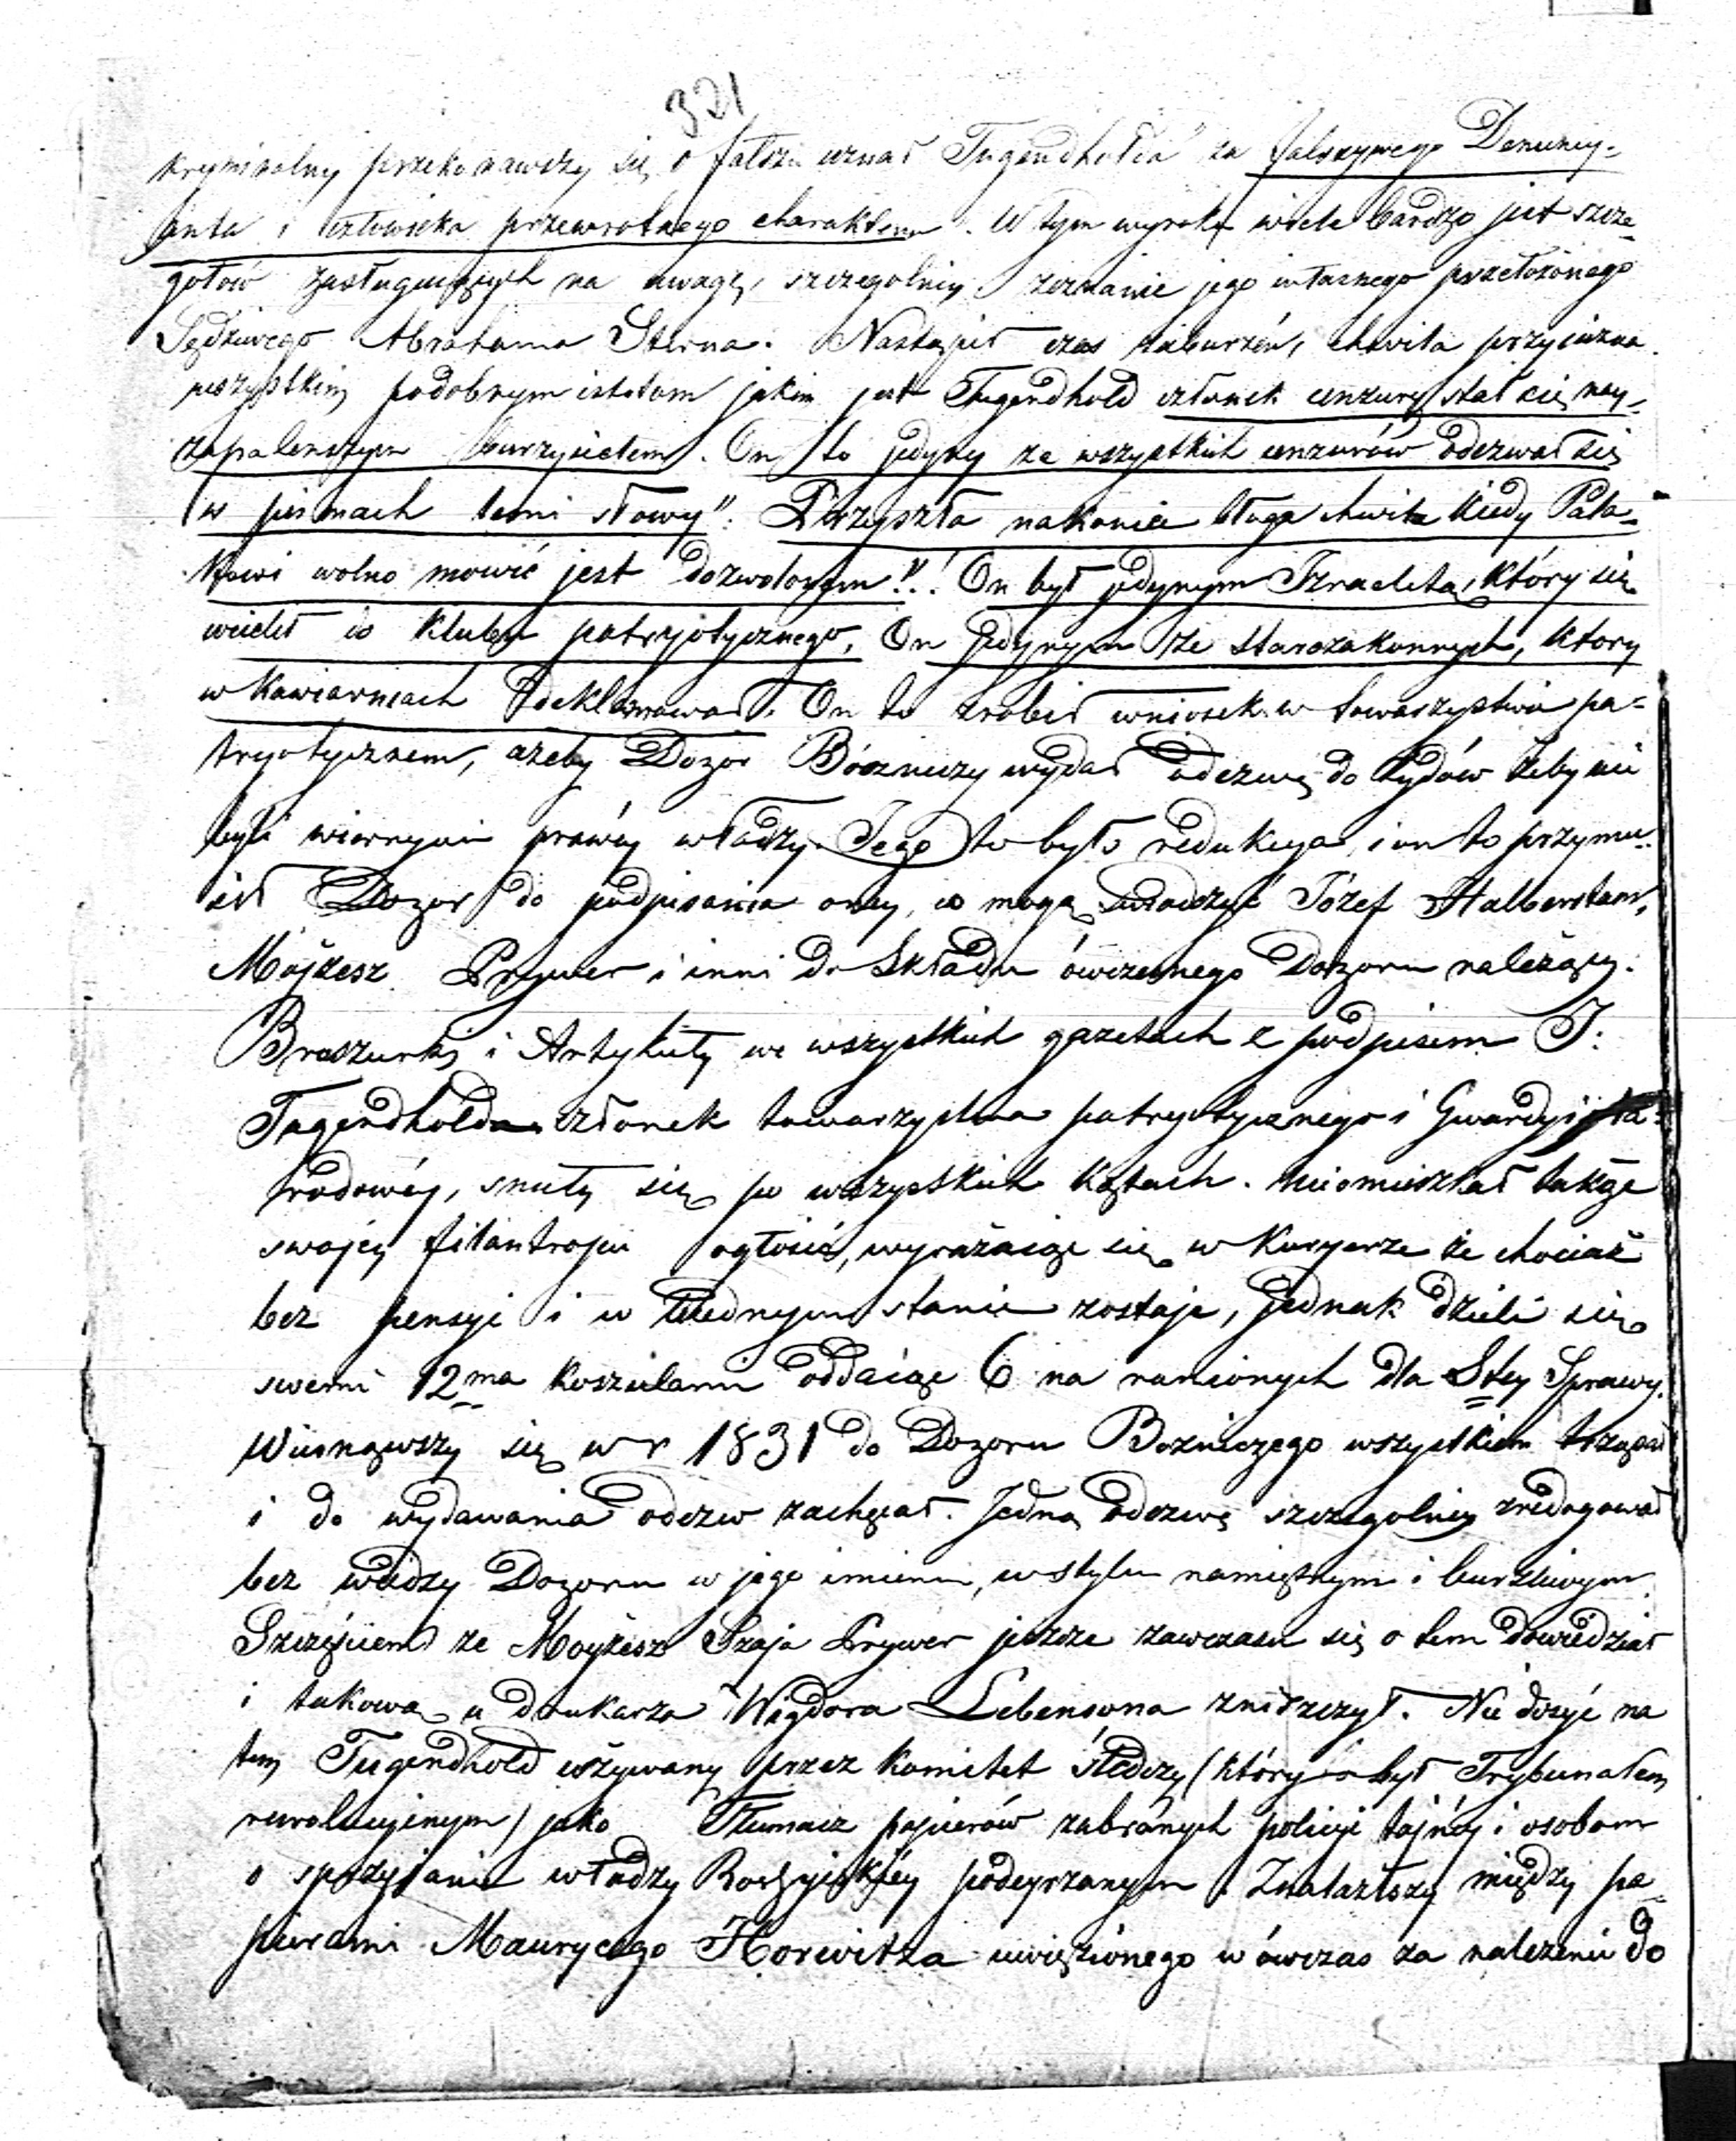 321
kryminalny przekonawszy się o fałszu uznał Tugendholda" za fałszywego Denuncy-
janta i człowieka przewrotnego charakteru". W tym wyroku wiele bardzo jest szcze-
gołow zasługujących na uwagę, szczegolniey zeznanie jego własnego przełożonego
Sędziwego Abrahama Sterna. Nastąpił czas zaburzeń, chwila przyjazna
wszystkim podobnym istotom jakim jest Tugendhold członek cenzury stał się nay-
zapaleńszym burzycielem. On to jedyny ze wszystkich cenzurów odezwał się
w pismach temi słowy": Przyszła nakoniec błoga chwila kiedy Pola-
kowi wolno mowić jest dozwolonem"!.! On był jedynym Izraelitą, który się
wcielił do klubu patryotycznego, On jedynym ze starozakonnych, ktory
w kawiarniach deklamował. On to zrobił wniosek w towarzystwie pa-
tryotycznem, ażeby Dozor Bóżniczy wydał odezwę do Żydów żeby nie
byli wiernymi prawéy władzy. Jego to było redakcya, i on to przymu-
sił Dozor do podpisania oney, co mogą świadczyć Józef Halberstam,
Mojżesz Prywer i inni do Składu ówczesnego Dozoru należący.
Broszurki i Artykuły we wszystkich gazetach z podpisem J:
Tugendholda członek towarzystwa patryotycznego i Gwardyi Na-
rodowéy, snuły się po wszystkich kątach. Nieomieszkał także
swojéy filantropii ogłosić, wyrażaiąc się w Kuryerze że chociaż
bez pensyi i w biednym stanie zostaje, jednak dzieli się
swemi 12ma koszulami oddaiąc 6 na ranionych dla Stey Sprawy.
Wcisnąwszy się w r 1831 do Dozoru Bozniczego wszystkiem trząsał
i do wydawania odezw zachęcał. Jedną odezwę szczegolniey zredagował
bez wiedzy Dozoru w jego imieniu, w stylu namiętnym i burzliwym.
Szczęściem że Moyżesz Szaja Prywer jeszcze zawczasu się o tem dowiedział
i takową u drukarza Wigdora Lebensona zniszczył. Nie dosyć na
tem Tugendhold używany przez komitet śledczy (który był Trybunałem
rewolucyjnym) jako Tłumacz papierów zabranych policyi tajnéy i osobom
o sprzyjanie władzy Rossyjskiéy podeyrzanym. Znalazłszy między pa-
pierami Maurycego Horowitza uwięzionego w ówczas za należenie do